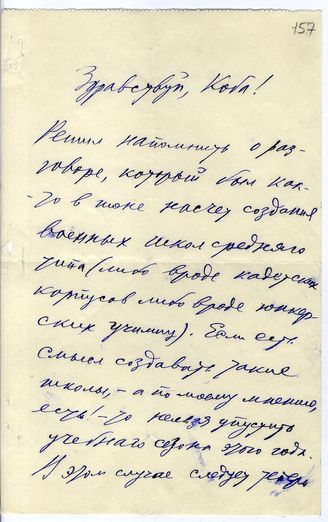 157
Здравствуй, Коба!
Решил напомнить о раз-
говоре, который был как-
-то в июне насчет создания
военных школ среднего
типа (либо вроде кадетских
корпусов либо вроде юнкер-
ских училищ). Если есть
смысл создавать такие
школы, - а по моему мнению,
есть! - то нельзя упустить
учебного сезона этого года.
В этом случае следует теперь